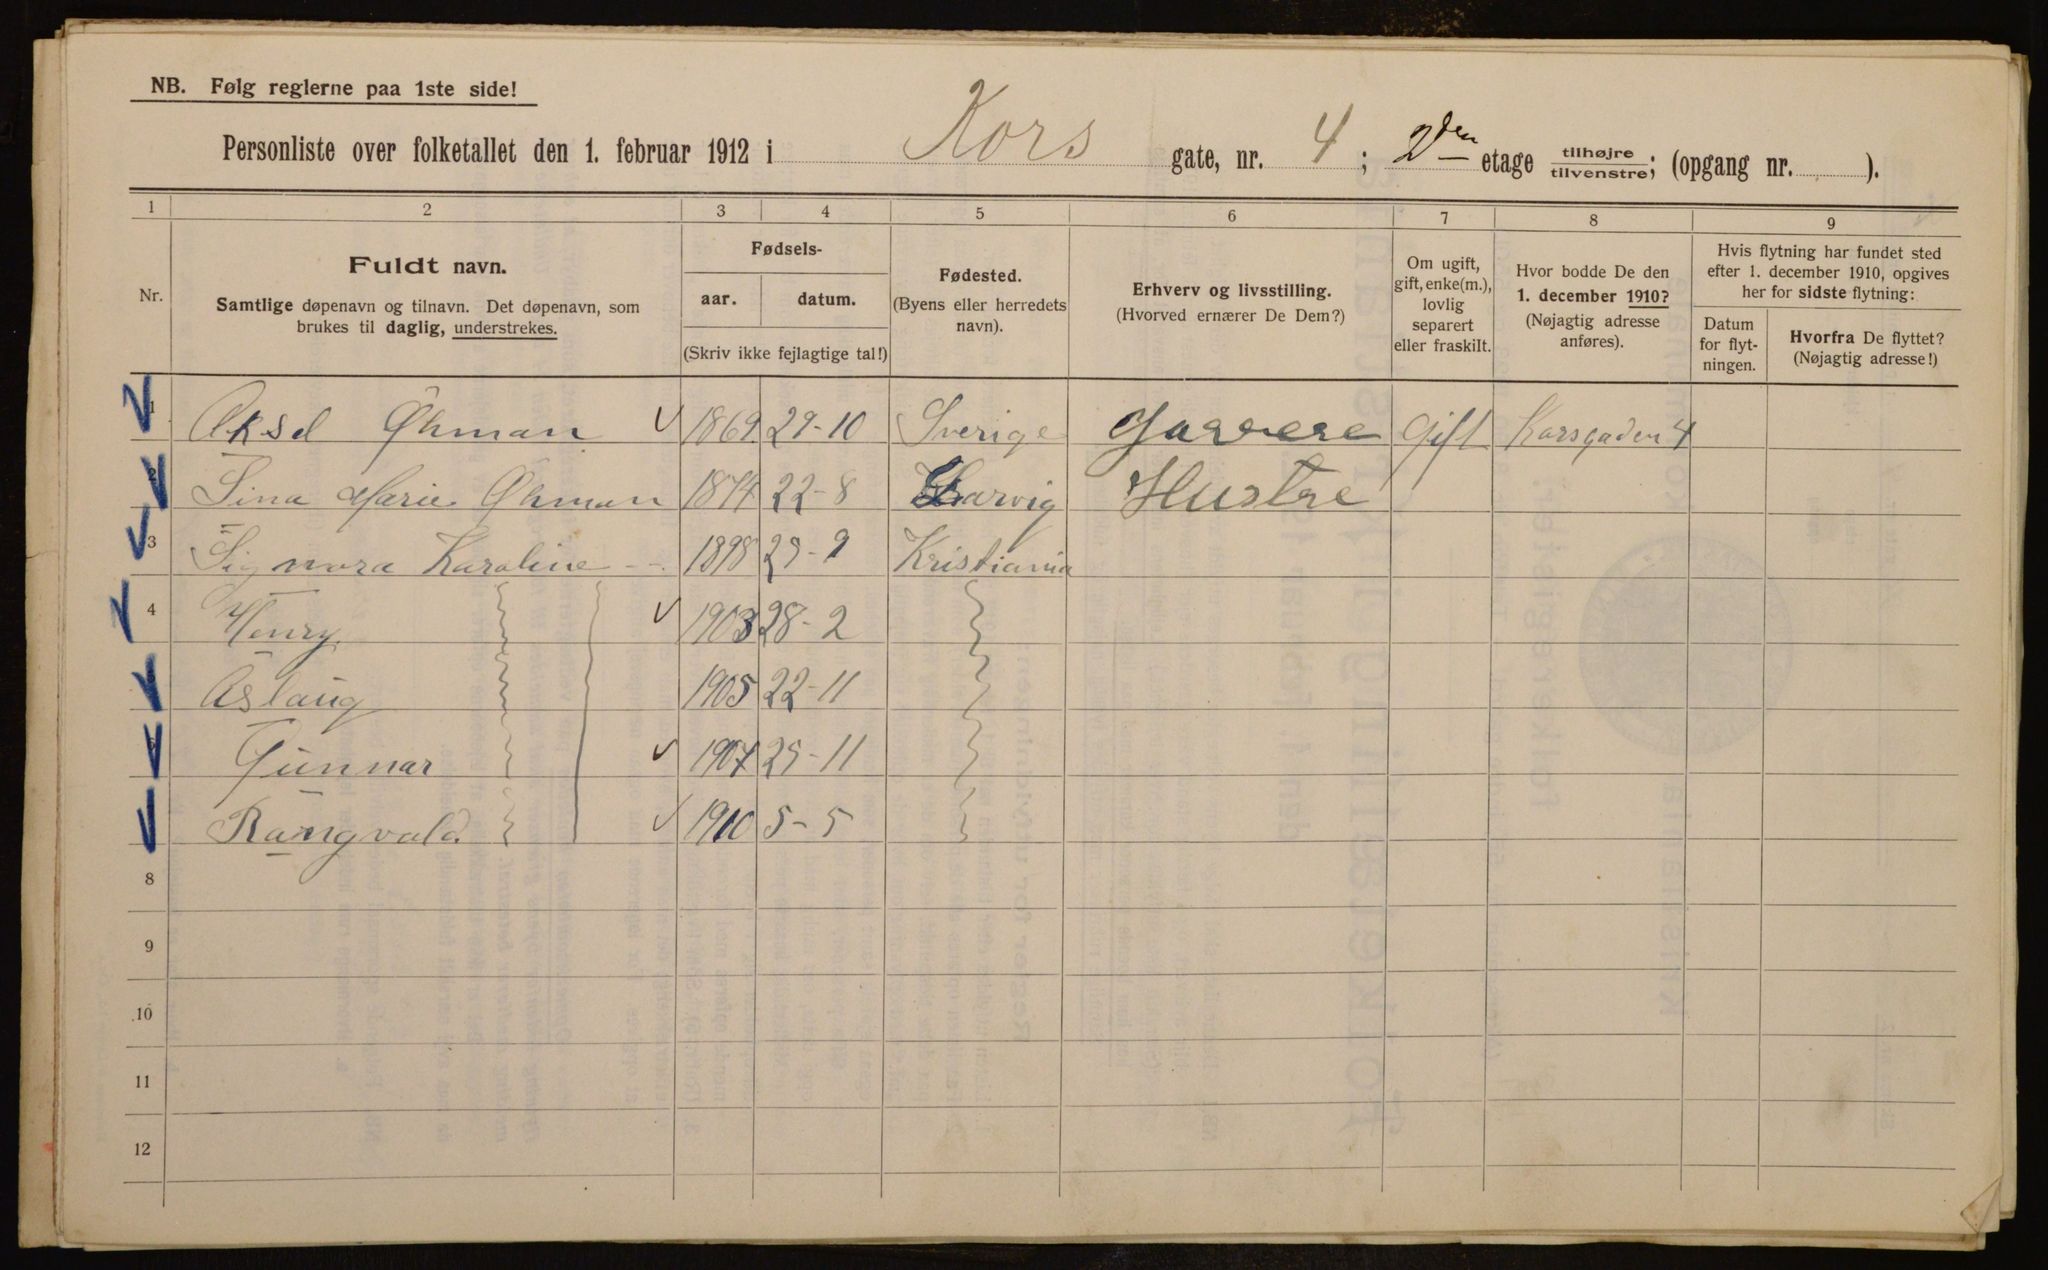 NB. Følg reglerne paa 1ste side!
Personliste over folketallet den 1. februar 1912 i Kors gate, nr. 4; 2den etage tilhøjre/tilvenstre; (opgang nr. ).
1 2 3 4 5 6 7 8 9
Nr.
Fuldt navn.
Samtlige døpenavn og tilnavn. Det døpenavn, som
brukes til daglig, understrekes.
Fødsels-
aar. datum.
(Skriv ikke fejlagtige tal!)
Fødested.
(Byens eller herredets
navn).
Erhverv og livsstilling.
(Hvorved ernærer De Dem?)
Om ugift,
gift, enke(m.),
lovlig
separert
eller fraskilt.
Hvor bodde De den
1. december 1910?
(Nøjagtig adresse
anføres).
Hvis flytning har fundet sted
efter 1. december 1910, opgives
her for sidste flytning:
Datum
for flyt-
ningen.
Hvorfra De flyttet?
(Nøjagtig adresse!)
1 Aksel Öhman 1869 29-10 Sverige Garvere Gift Korsgaden 4
2 Sina Marie Öhman 1874 22-8 Larvig Hustre
3 Signora Karoline 1898 29-9 Kristiania
4 Henry 1903 28-2
Aslaug 1905 22-11
Gunnar 1907 25-11
Rangvald 1910 5-5
8
9
10
11
12